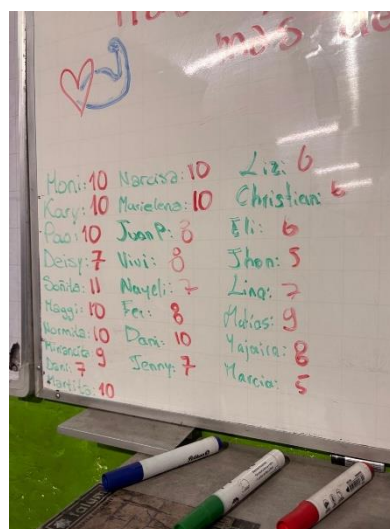 más
Moni: 10
Kary: 10
Pao: 10
Deisy: 7
Sonita: 11
Maggi: 10
Normita: 10
9
Dani: 7
Martita: 10
Narcisa: 10
Marielena: 10
Juan P: 8
Vivi: 8
Nayeli: 7
Fer: 8
Dani: 10
Jenny: 7
Liz: 6
Christian: 6
Eli: 6
Jhon: 5
Lina: 7
Matias: 9
Yajaira: 8
Marcia: 5